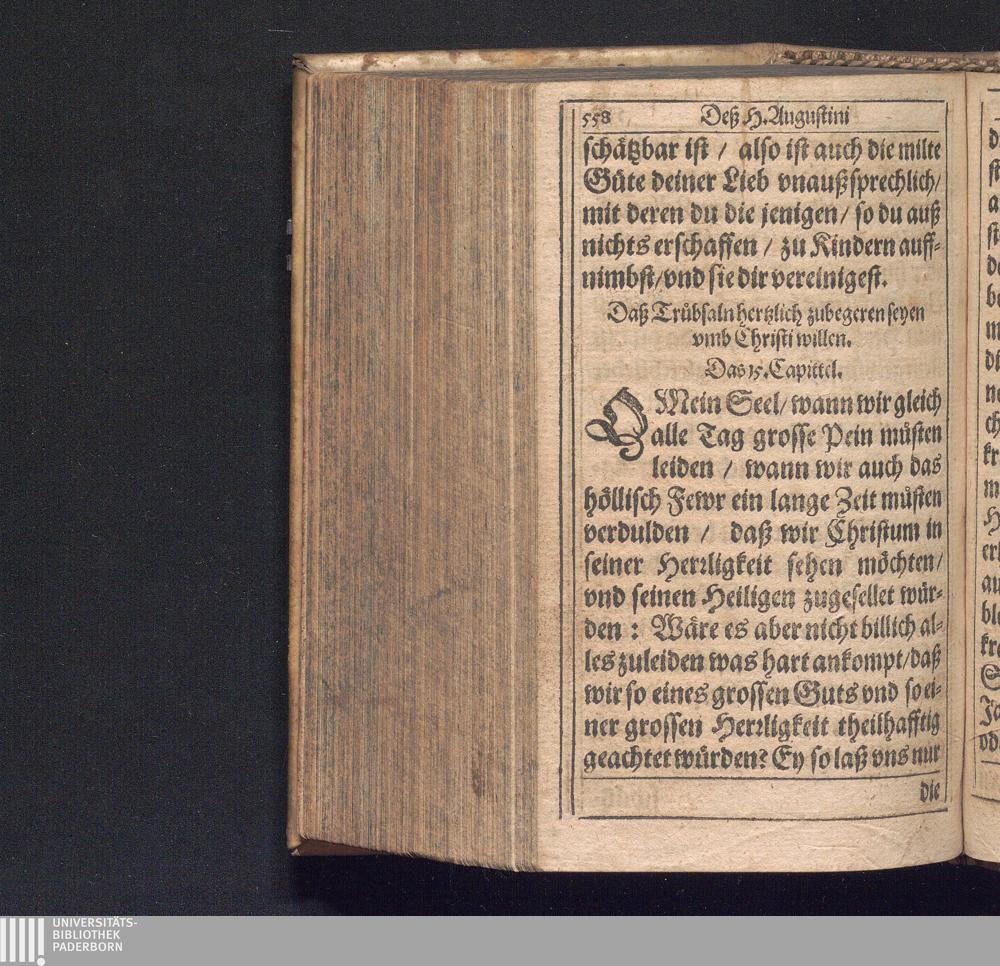 558 Deß H. Augustini
schätzbar ist / also ist auch die milte
Güte deiner Lieb vnaußsprechlich/
mit deren du die jenigen / so du auß
nichts erschaffen / zu Kindern auff-
nimbst/vnd sie dir vereinigest.
Daß Trübsaln hertzlich zubegeren seyen
vmb Christi willen.
Das 15. Capittel.
O Mein Seel/ wann wir gleich
alle Tag grosse Pein müsten
leiden / wann wir auch das
höllisch Fewr ein lange Zeit müsten
verdulden / daß wir Christum in
seiner Herrligkeit sehen möchten/
vnd seinen Heiligen zugesellet wür-
den : Wäre es aber nicht billich al-
les zuleiden was hart ankompt/daß
wir so eines grossen Guts vnd so ei-
ner grossen Herrligkeit theilhafftig
geachtet würden? Ey so laß vns nur
die
UNIVERSITÄTS-
BIBLIOTHEK
PADERBORN